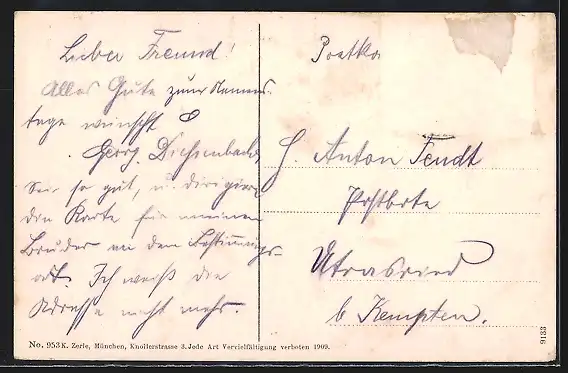 Lieber Freund!
Alles Gute zum Namens-
tage wünscht
Georg Diesenbacher
Sei so gut, u. dirigiere
die Karte für meinen
Bruder an den Bestimmungs-
ort. Ich weiß die
Adresse nicht mehr.
Postka
H. Anton Fendt
Postbote
Utrasried
b Kempten.
No. 953 K. Zerle, München, Knollerstrasse 3. Jede Art Vervielfältigung verboten 1909.
9133